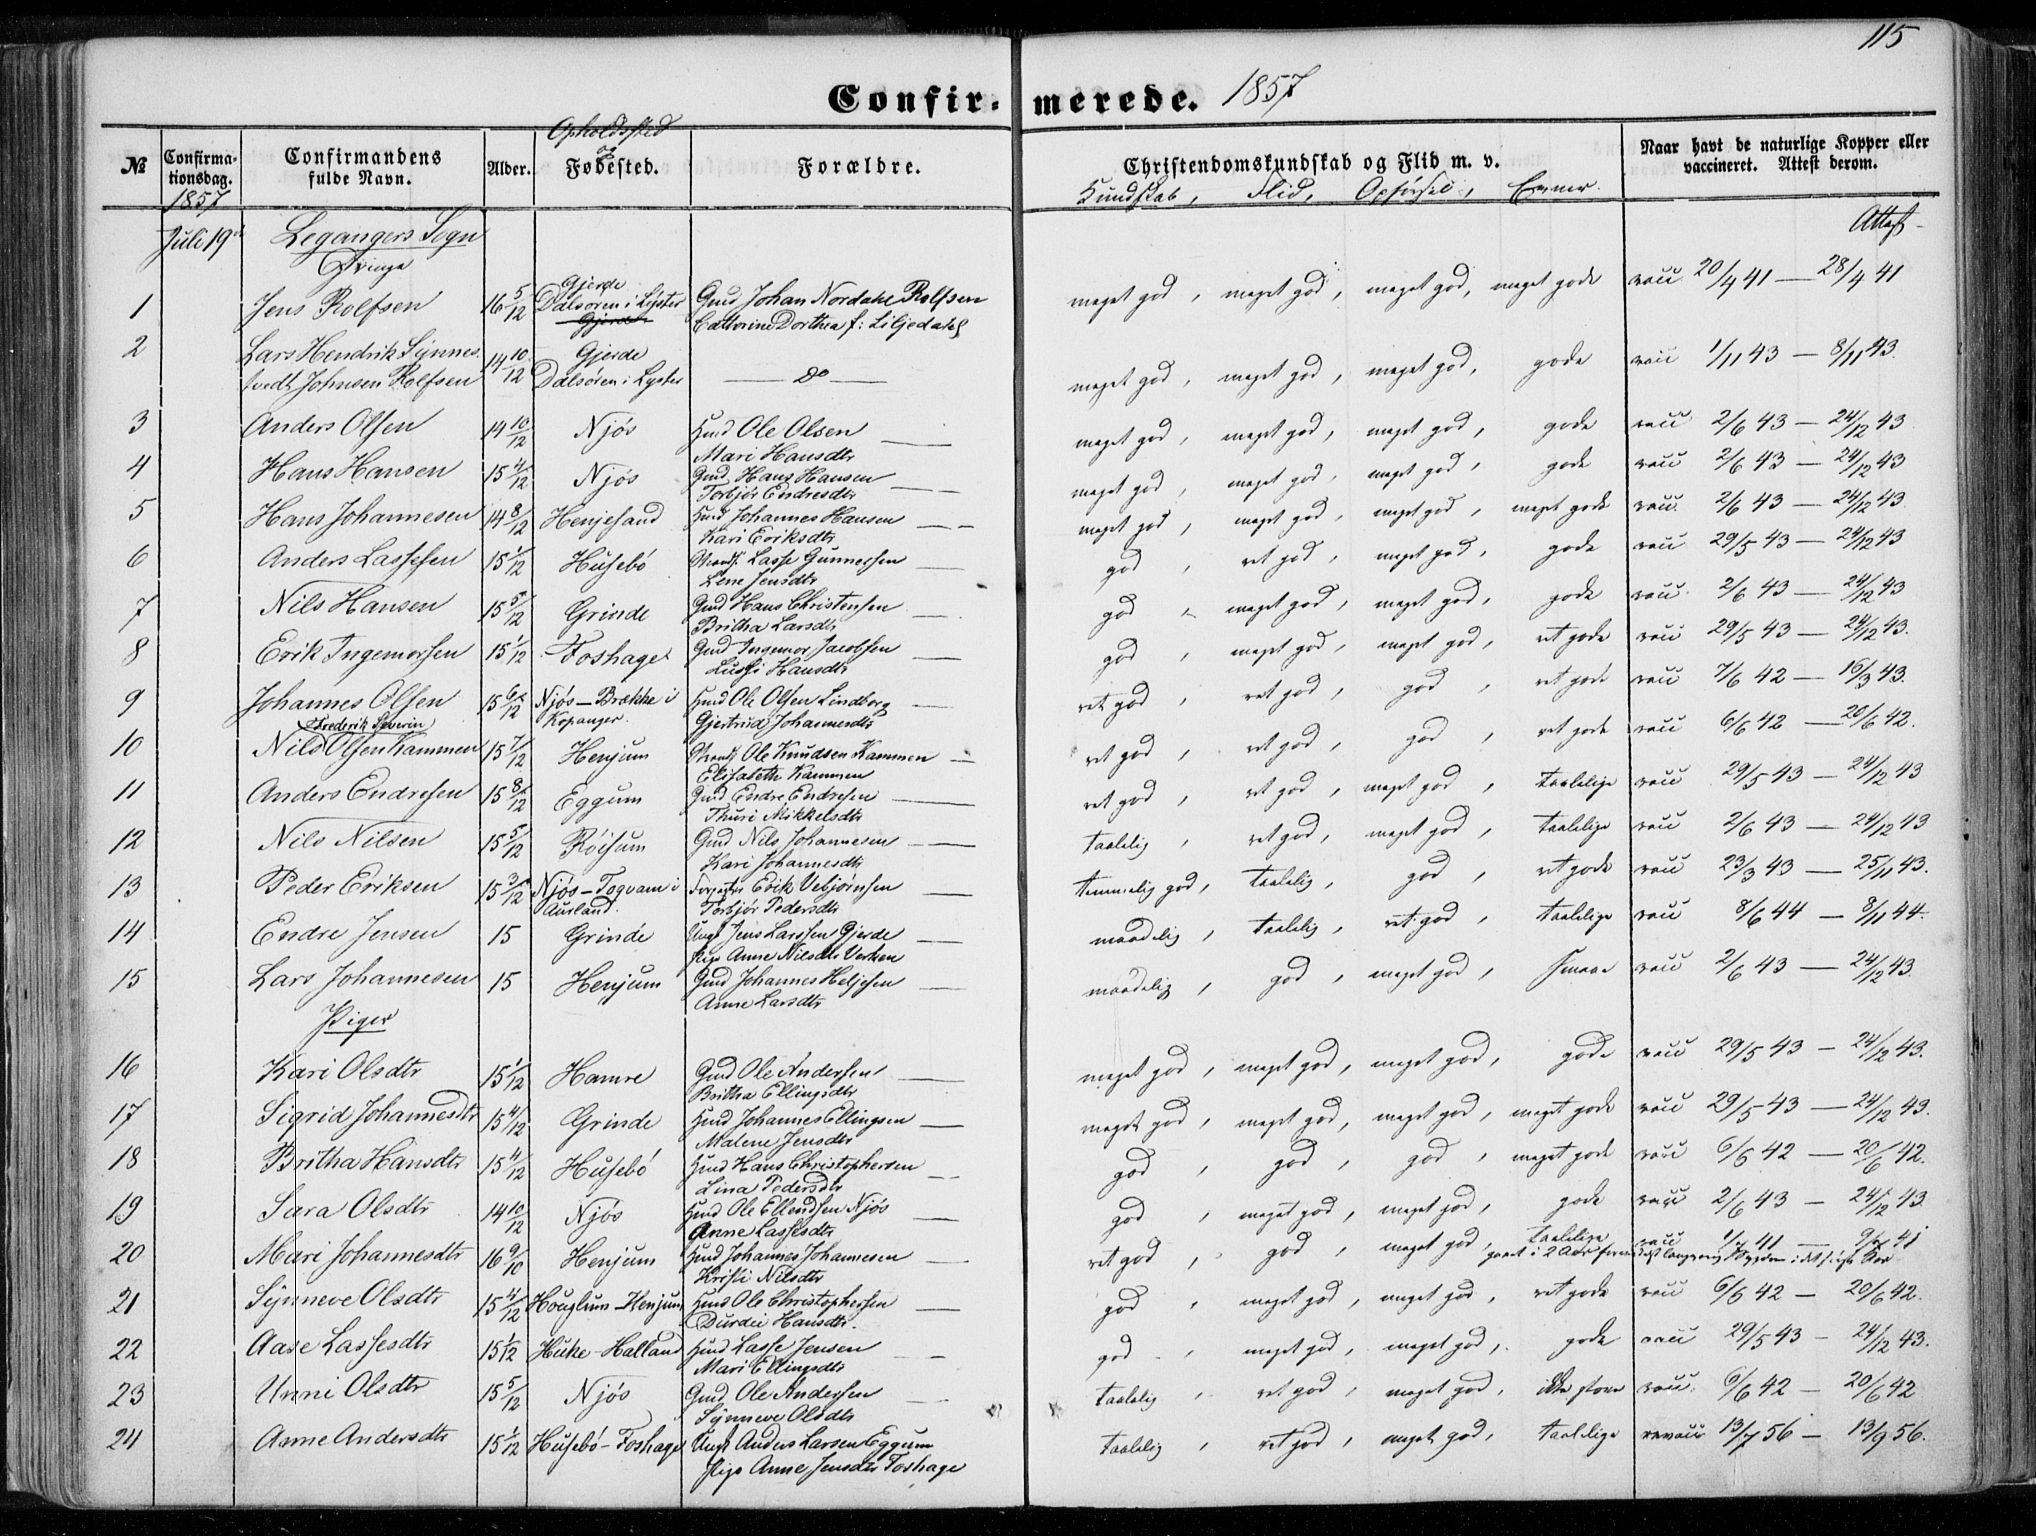 115
Confir- merede. 1857
№ Confirmationsdag. Confirmandens fulde Navn. Alder. Opholdssted og Fødested. Forældre. Christendomskundskab og Flid m. v. Naar havt de naturlige Kopper eller vaccineret. Attest derom.
1857 Kundskab, Flid, Opførsel, Evner.
Juli 19de Legangers Sogn Attest
Drenge
1 Jens Rolfsen 16 5/12 Gjerde Dalsøren i Lyster Gjerde Gmd Johan Nordahl Rolfsen meget god, meget god, meget god, meget gode vacc 20/4 41 — 28/4 41
Cathrine Dorthea f: Liljedahl
2 Lars Hendrik Synnestvedt Johnsen Rolfsen 14 10/12 Gjerde Dalsøren i Lyster — do — meget god, meget god, meget god, gode vacc 1/11 43 — 8/11 43.
3 Anders Olsen 14 10/12 Njøs Hmd Ole Olsen meget god, meget god, meget god, gode vacc 2/6 43 — 24/12 43
Mari Hansdtr
4 Hans Hansen 15 4/12 Njøs Gmd Hans Hansen meget god, meget god, meget god, gode vacc 2/6 43 — 24/12 43
Torbjør Endresdtr
5 Hans Johannesen 14 8/12 Henjesand Hmd Johannes Hansen meget god, meget god, meget god, meget gode vacc. 2/6 43 — 24/12 43.
Kari Eriksdtr
6 Anders Lassesen 15 1/12 Husebó Strands. Lasse Gunnersen god, ret god, meget god, gode vacc 29/5 43 — 24/12 43
Lene Jensdtr
7 Nils Hansen 15 5/12 Grinde Gmd Hans Christensen god, meget god, meget god, gode vacc. 2/6 43 — 24/12 43
Britha Larsdtr
8 Erik Ingemorsen 15 1/12 Foshage Gmd Ingemor Jacobsen god, meget god, meget god, ret gode vacc 29/5 43 — 24/12 43.
Lussi Hansdtr
9 Johannes Olsen 15 6/12 Njøs – Brække i Kopanger. Hmd Ole Olsen Lindborg ret god, ret god, god, ret gode vacc 7/6 42 — 16/3 43.
Gjertrud Johannesdtr
10 Frederik Severin Nils Olsen Kammen 15 7/12 Henjum Strands Ole Knudsen Kammen ret god, ret god, god, ret gode vacc 6/6 42 — 20/6 42.
Elisabeth Kammen
11 Anders Endresen 15 8/12 Eggum Gmd Endre Endresen ret god, ret god, meget god, taalelige vacc 29/5 43 — 24/12 43
Thuri Mikkelsdtr
12 Nils Nilsen 15 5/12 Røisum Gmd Nils Johannesen taalelig, ret god, meget god, taalelige vacc 2/6 43 — 24/12 43
Kari Johannesdtr
13 Peder Eriksen 15 3/12 Njøs – Toqvam i Aurland. Erik Vebjørnsen temmelig god, taalelig, god, ret gode vacc 23/3 43 — 25/11 43.
Torbjør Pedersdtr
14 Endre Jensen 15 Grinde Ungk Jens Larssen Gjerde maadelig, taalelig, ret god, taalelige vacc 8/6 44 — 8/11 44.
Pige Anne Nilsdtr
15 Lars Johannesen 15 Henjum Gmd Johannes Heljesen maadelig, god, meget god, smaae vacc 2/6 43 — 24/12 43.
Anne Larsdtr
Piger
16 Kari Olsdtr 15 1/12 Hamre Gmd Ole Andersen meget god, meget god, meget god, gode vacc 29/5 43 — 24/12 43.
Britha Ellingsdtr
17 Sigrid Johannesdtr 15 4/12 Grinde Hmd Johannes Ellingsen meget god, meget god, meget god, meget gode vacc 29/5 43 — 24/12 43.
Malene Jensdtr
18 Britha Hansdtr 15 4/12 Husebó Hmd Hans Christophersen god, god, god, meget gode vacc 6/6 42 — 20/6 42.
Lina Pedersdtr
19 Sara Olsdtr 14 10/12 Njøs Hmd Ole Ellendsen Njøs god, meget god, meget god, gode vacc 2/6 43 — 24/12 43.
Anne Lassesdtr
20 Mari Johannesdtr 16 9/10 Henjum Hmd Johannes Johannesen ret god, god, meget god, taalelige vacc
Kristi Nilsdtr gaaet i 2 Aar
21 Synneve Olsdtr 15 4/12 Houglum – Henjum Hmd Ole Christophersen god, meget god, meget god, ret gode vacc 6/6 42 — 20/6 42.
Durdei Hansdtr.
22 Aase Lassesdtr 15 1/12 Huke – Halland Hmd Lasse Jensen god, meget god, meget god, gode vacc 29/5 43 — 24/12 43.
Mari Ellingsdtr
23 Unni Olsdtr 15 5/12 Njøs Gmd Ole Andersen taalelig, ret god, meget god, ikke store vacc. 6/6 42 — 20/6 42
Synneve Olsdtr
24 Anne Andersdtr 15 1/12 Husebó – Foshage Ungk Anders Larsen Eggum taalelig, ret god, meget god, taalelige revacc 13/7 56 — 13/9 56.
Pige Anne Jensdtr Foshage